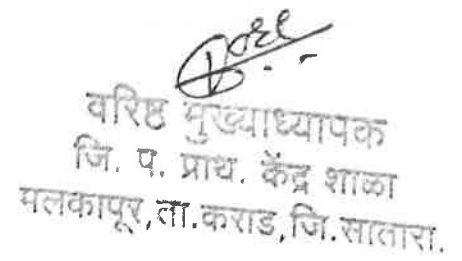 वरिष्ठ मुख्याध्यापक
जि. प. प्राथ. केंद्र शाळा
मलकापूर,ता.कराड,जि.सातारा.